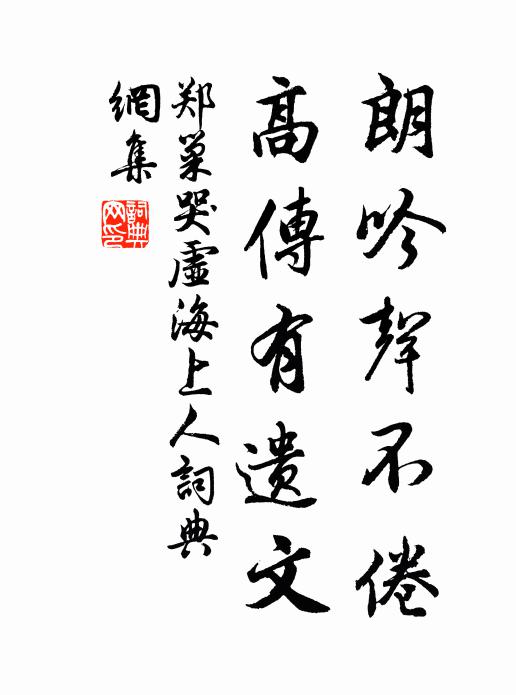 朗吟聲不倦
高傳有遺文
郑巢哭虛海上人詞典
網集
詞典
网印